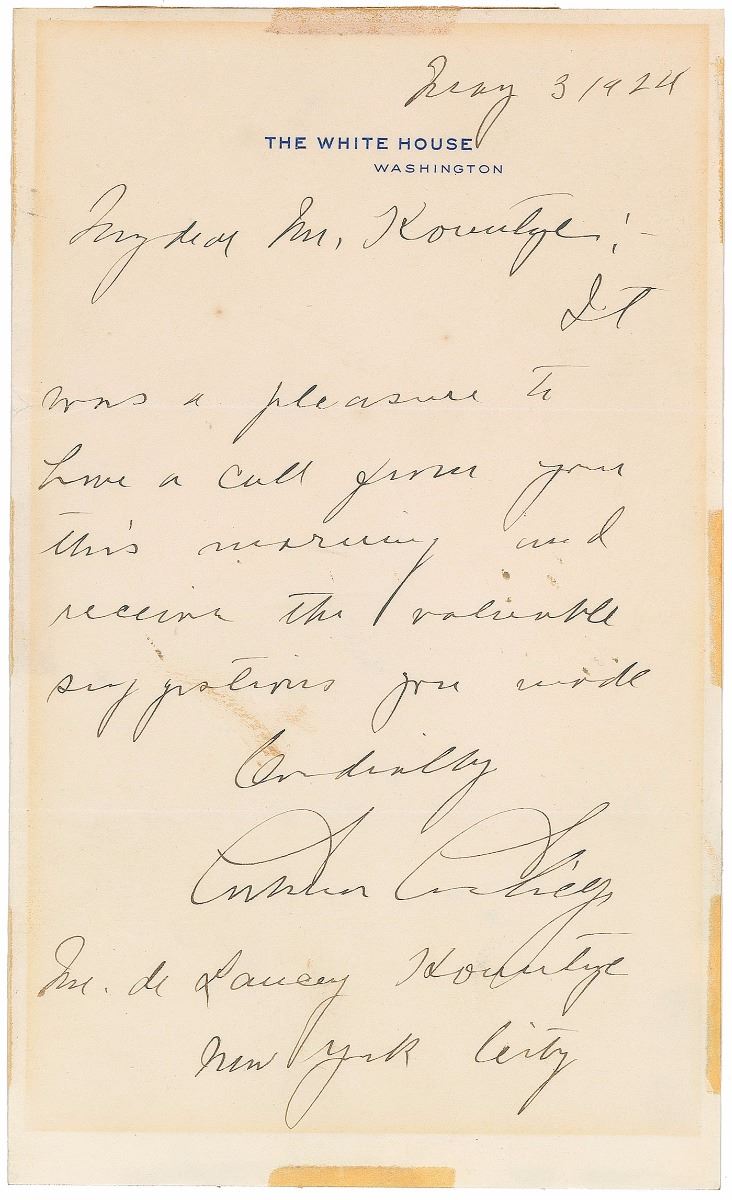 May 3 1924
THE WHITE HOUSE
WASHINGTON
My dear Mr. Kountze:-
It
was a pleasure to
have a call from you
this morning and
receive the valuable
suggestions you made
Cordially
Calvin Coolidge
Mr. de Lancey Kountze
New York City